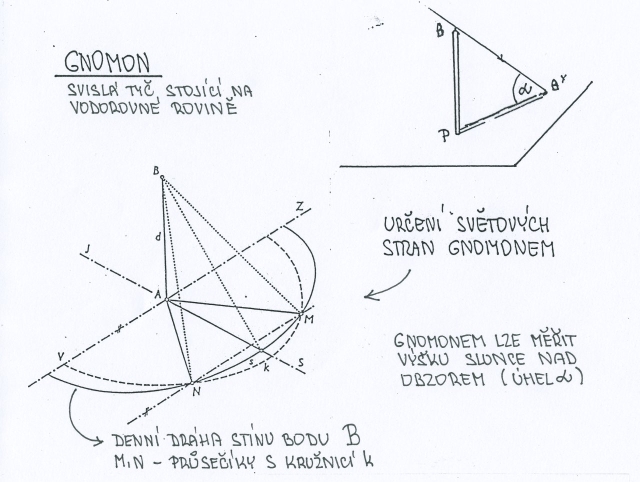 GNOMON
SVISLÁ TYČ STOJÍCÍ NA
VODOROVNÉ ROVINĚ
B
α
B'
P
B
d
J
Z
A
M
V
S
s
k
N
URČENÍ SVĚTOVÝCH
STRAN GNOMONEM
GNOMONEM LZE MĚŘIT
VÝŠKU SLUNCE NAD
OBZOREM (ÚHEL α)
DENNÍ DRÁHA STÍNU BODU B
M,N - PRŮSEČÍKY S KRUŽNICÍ k